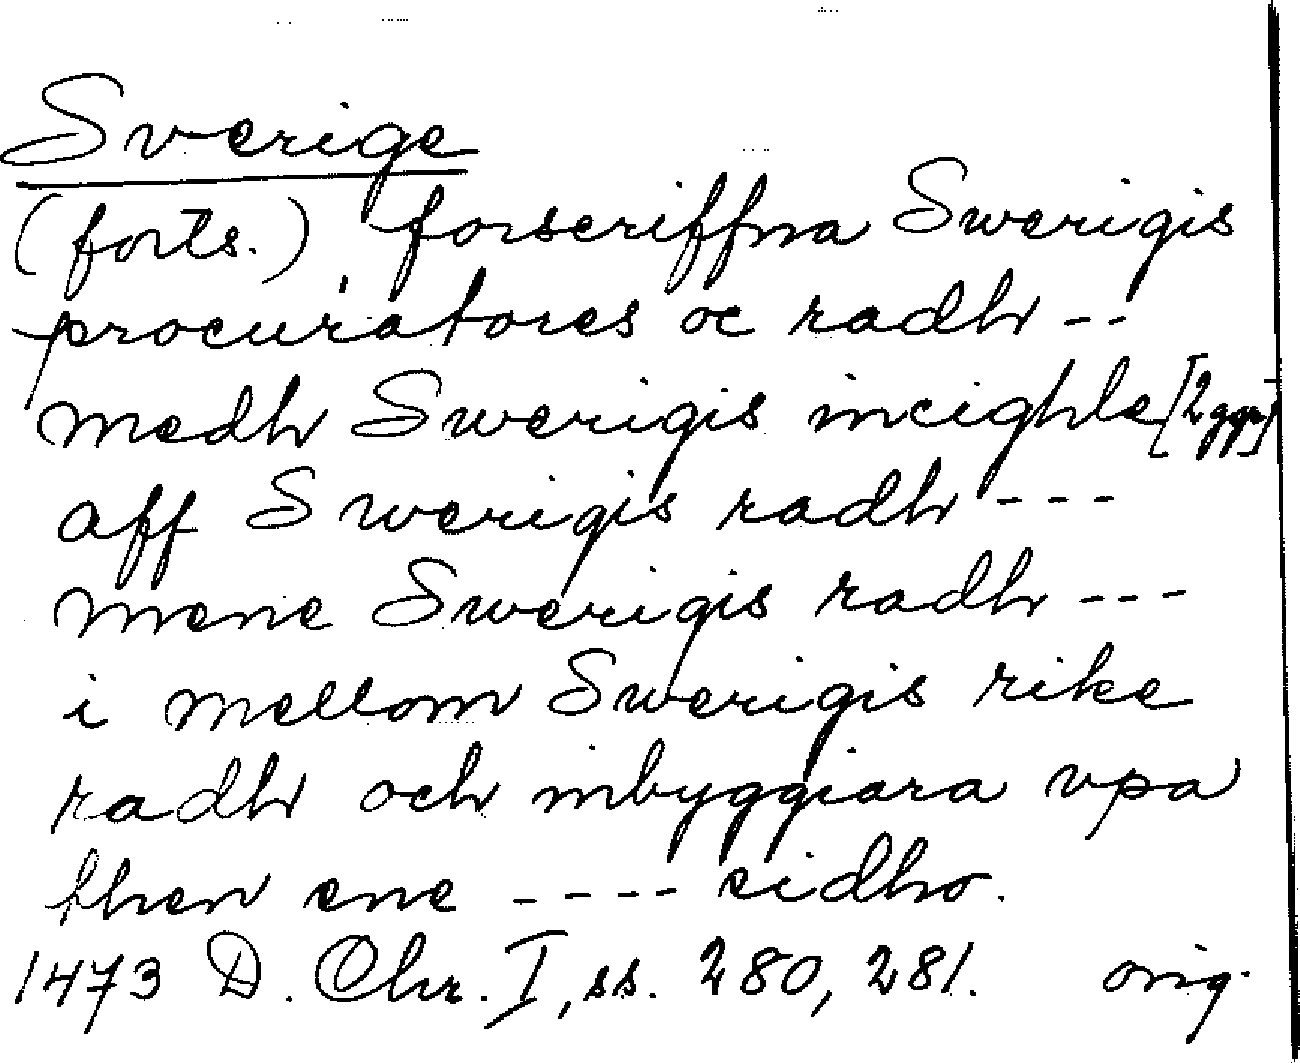 Sverige
(forts.) forscriffna Swerigis
procuratores oc radh --
medh Swerigis inceighle [2 ggr]
aff Swerigis radh ---
mene Swerigis radh ---
i mellom Swerigis rike
radh och inbyggiara vpa
then ene ---- eidho.
1473 D. Chr. I, ss. 280, 281. orig.